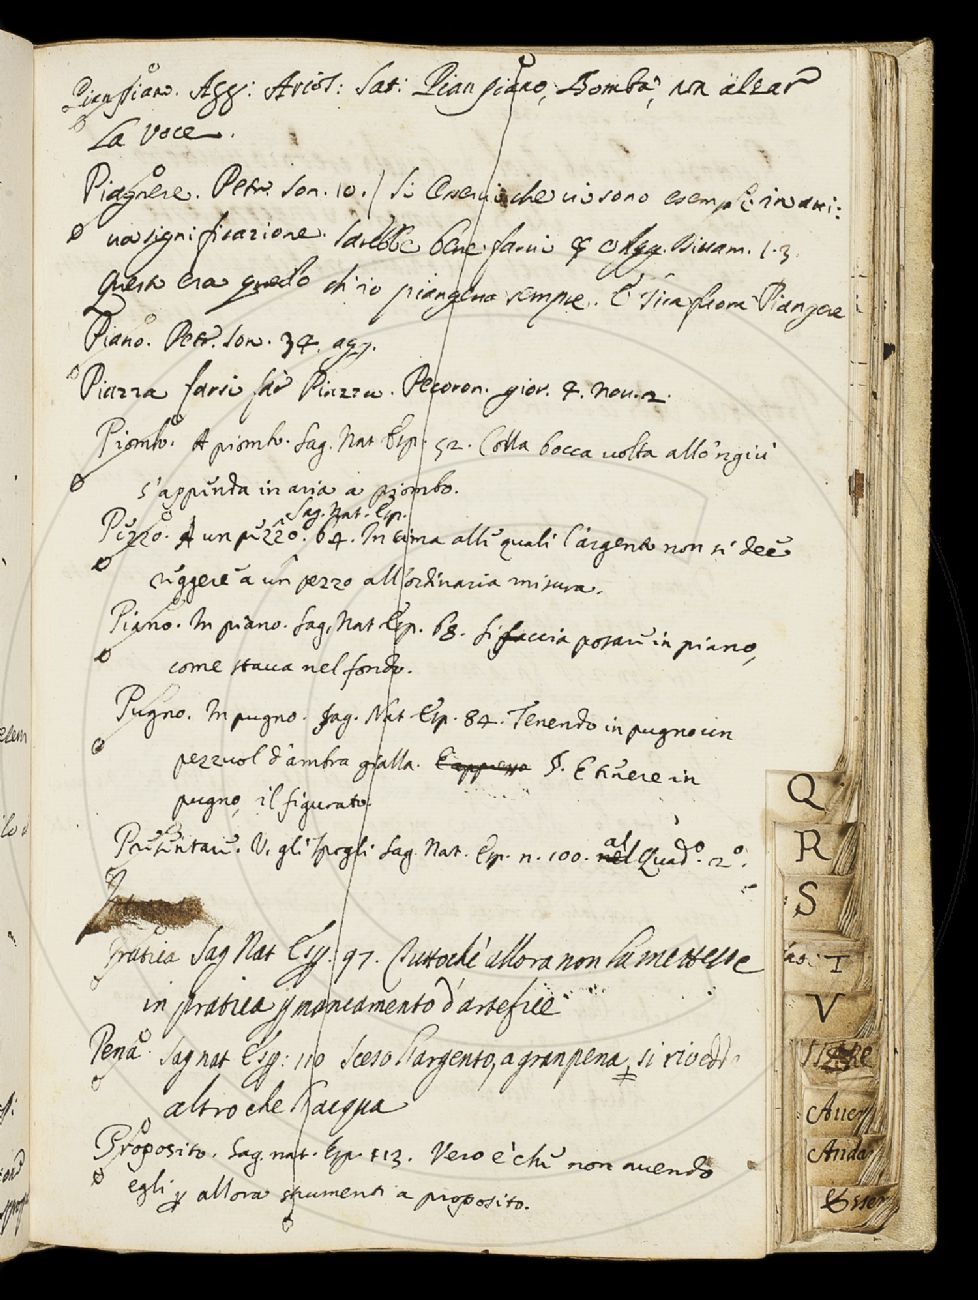 Pian piano. Agg: Arios: Sat: Pian piano, Bomba, non alzar
La voce.
Piagnere. Petr. Son. 10. / Si osservi che vi sono esempli in
va significazione. Sarebbe bene farvi
Questa era quello ch'io piangeva sempre. E si ca fuora Piangere
Piano. Petr. Son. 34. agg.
Piazza farsi far Piazza. Pecoron. gior. 4. Nov. 2.
Piombo. A piombo. Sag. Nat. Esp. 52. Colla bocca volta all'ingiù
s'appunta in aria a piombo.
Sag. Nat. Esp.
Pezzo. A un pezzo. 64. In cima alli quali l'argento non si dee
reggere a un pezzo all'ordinaria misura.
Piano. In piano. Sag. Nat. Esp. 68. Si faccia posare in piano,
come stava nel fondo.
Pugno. In pugno. Sag. Nat. Esp. 84. Tenendo in pugno un
pezzuol d'ambra gialla. E appresso §. E tenere in
pugno, il figurato.
Presentare. V. gli spogli Sag. Nat. Esp. n. 100. nel al Quad.º 2.º
Pratica Sag Nat Esp: 97. Tuttochè allora non la mettesse
in pratica p mancamento d'artefice
Pena. Sag nat Esp: 110 Sceso l'argento, a gran pena, si rivedde
altro che l'acqua
Proposito. Sag. nat. Esp. 113. Vero è che non avendo
egli p allora strumenti a proposito.
Q
R
S
T
V
Aver
Anda
Esser